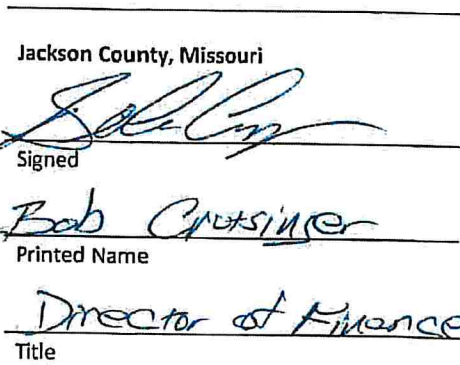 Jackson County, Missouri
Signed
Bob Crutsinger
Printed Name
Director of Finance
Title